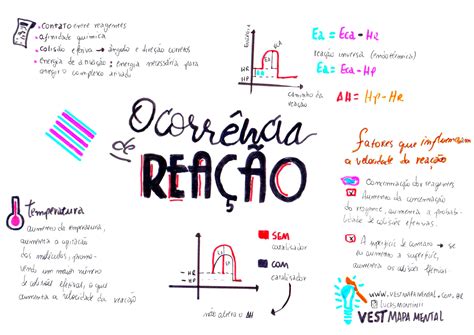 • contato entre reagentes
• afinidade química
• colisão efetiva → ângulo e direção corretos
• energia de ativação: energia necessária para
atingir o complexo ativado
Energia
HR
HP
caminho da
reação
Ea = Eca - Hr
reação inversa (endotérmica)
Ea = Eca - Hp
ΔH = Hp - Hr
Ocorrência
de
REAÇÃO
fatores que influenciam
a velocidade da reação
Concentração dos reagentes
Aumento da concentração
do reagente, aumenta a probabi-
lidade de colisões efetivas.
A superfície de contato → se
eu aumento a superfície,
aumenta as colisões efetivas
temperatura
aumento da temperatura,
aumenta a agitação
das moléculas, promo-
vendo um maior número
de colisões efetivas, o que
aumenta a velocidade da reação
HR
HP
SEM
catalisador
COM
catalisador
não altera o ΔH
www.vestmapamental.com.br
VEST MAPA MENTAL